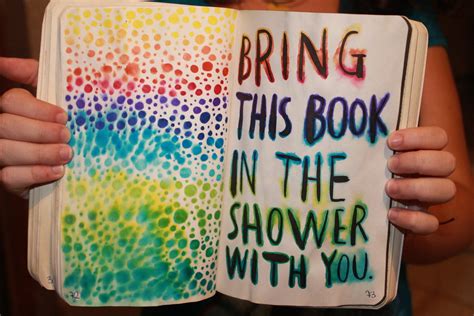 BRING
THIS BOOK
IN THE
SHOWER
WITH YOU.
72
73